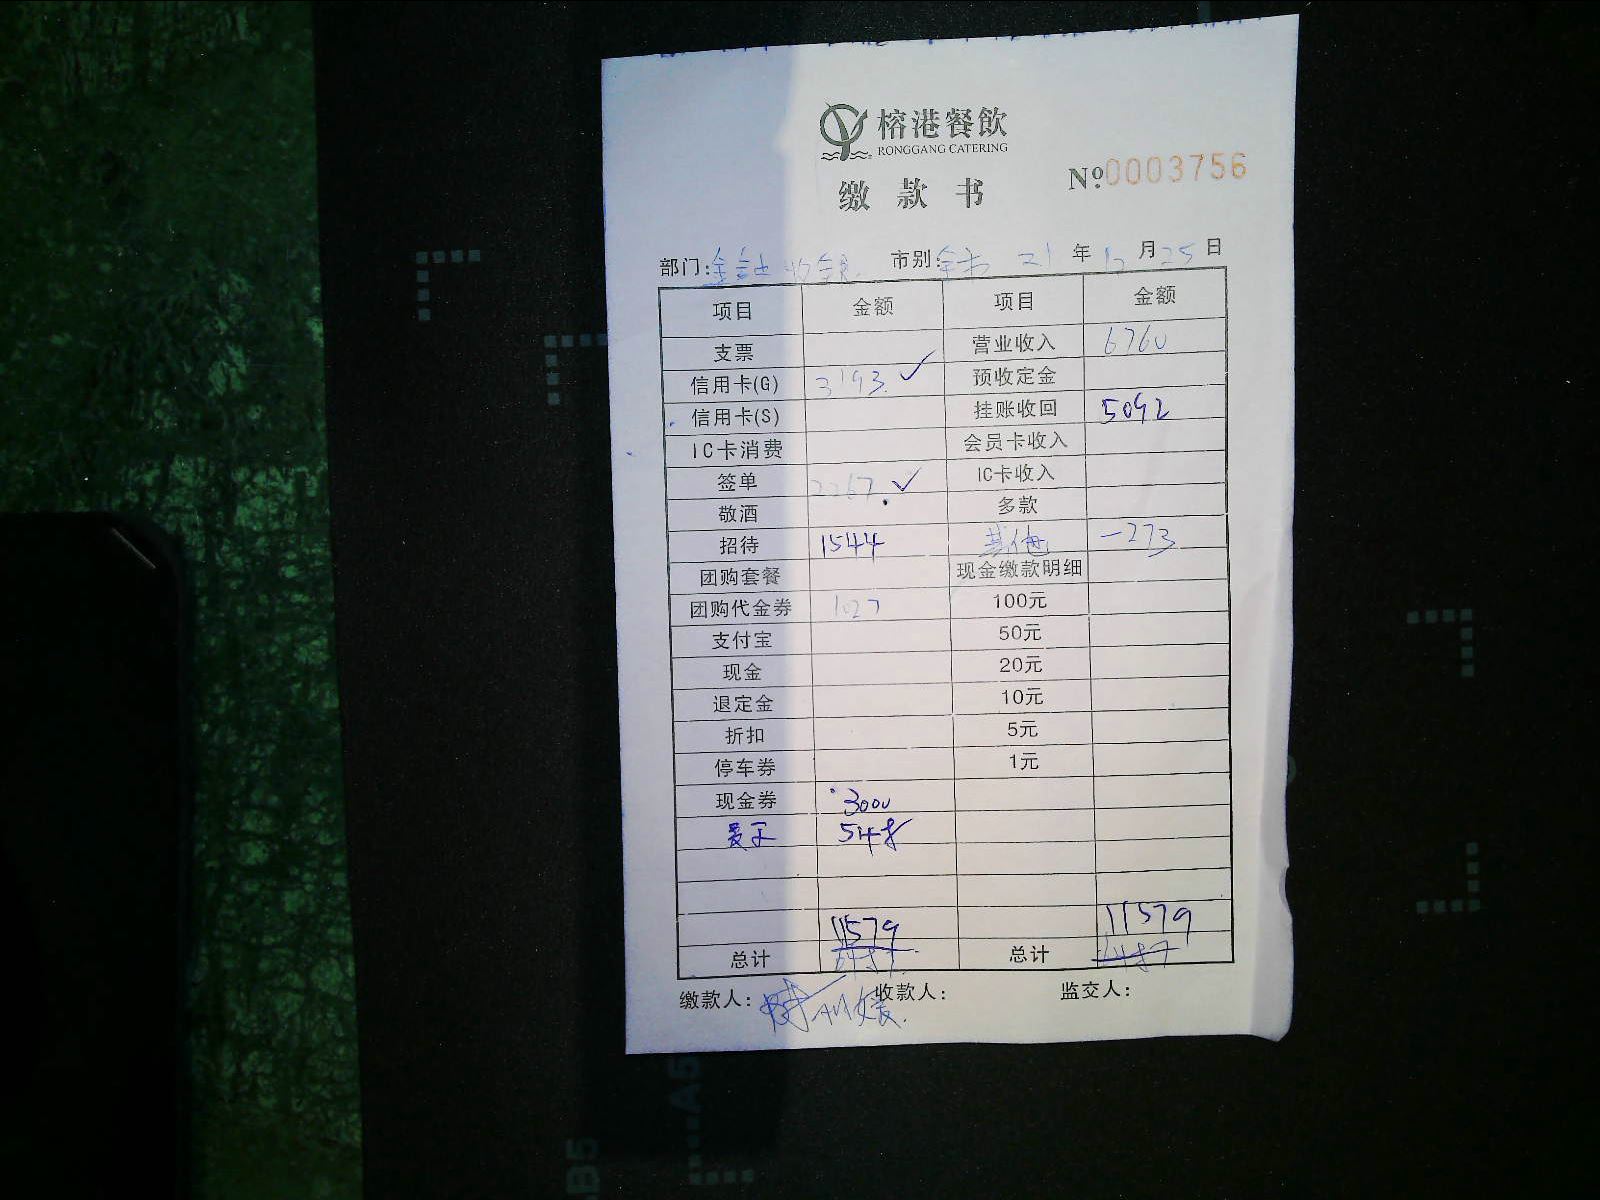 榕港餐飲
RONGGANG CATERING
缴款书
Nº:0003756
部门: 收银 市别:全市 21年12月25日
项目 金额 项目 金额
支票 营业收入 6760
信用卡(G) 3193. ✓ 预收定金
信用卡(S) 挂账收回 5092
IC卡消费 会员卡收入
签单 2267. ✓ IC卡收入
敬酒 多款
招待 1544 其他 -273
团购套餐 现金缴款明细
团购代金券 1027 100元
支付宝 50元
现金 20元
退定金 10元
折扣 5元
停车券 1元
现金券 3000
548
11579 11579
总计 6487 总计 6487
缴款人: 收款人: 监交人:
A5
B5